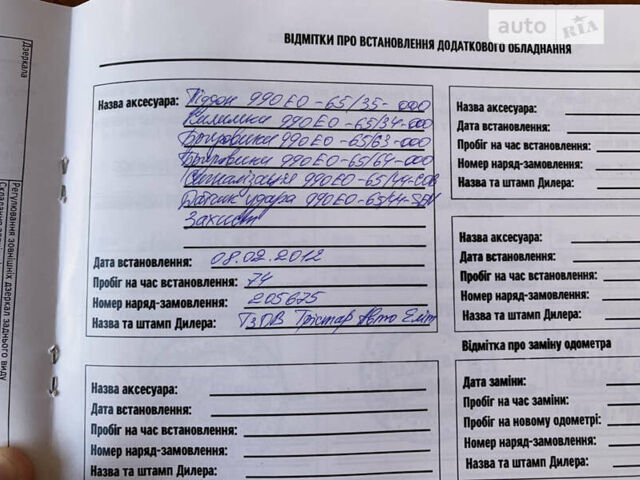 auto RIA
ВІДМІТКИ ПРО ВСТАНОВЛЕННЯ ДОДАТКОВОГО ОБЛАДНАННЯ
Дзеркала
Регулювання зовнішніх дзеркал заднього виду
Назва аксесуара: Піддон 990E0-65/35-000
Килимки 990E0-65/34-000
Бризговики 990E0-65/63-000
Бризговики 990E0-65/64-000
Сигналізація 990E0-65/44-COB
Датчик удара 990E0-65/44-SEN
Захист
Дата встановлення: 08.02.2012
Пробіг на час встановлення: 74
Номер наряд-замовлення: 205675
Назва та штамп Дилера: ТзОВ Трістар Авто Еліт
Назва аксесуара:
Дата встановлення:
Пробіг на час встановлення:
Номер наряд-замовлення:
Назва та штамп Дилера:
Назва аксесуара:
Дата встановлення:
Пробіг на час встановлення:
Номер наряд-замовлення:
Назва та штамп Дилера:
Назва аксесуара:
Дата встановлення:
Пробіг на час встановлення:
Номер наряд-замовлення:
Назва та штамп Дилера:
Відмітка про заміну одометра
Дата заміни:
Пробіг на час заміни:
Пробіг на новому одометрі:
Номер наряд-замовлення:
Назва та штамп Дилера: